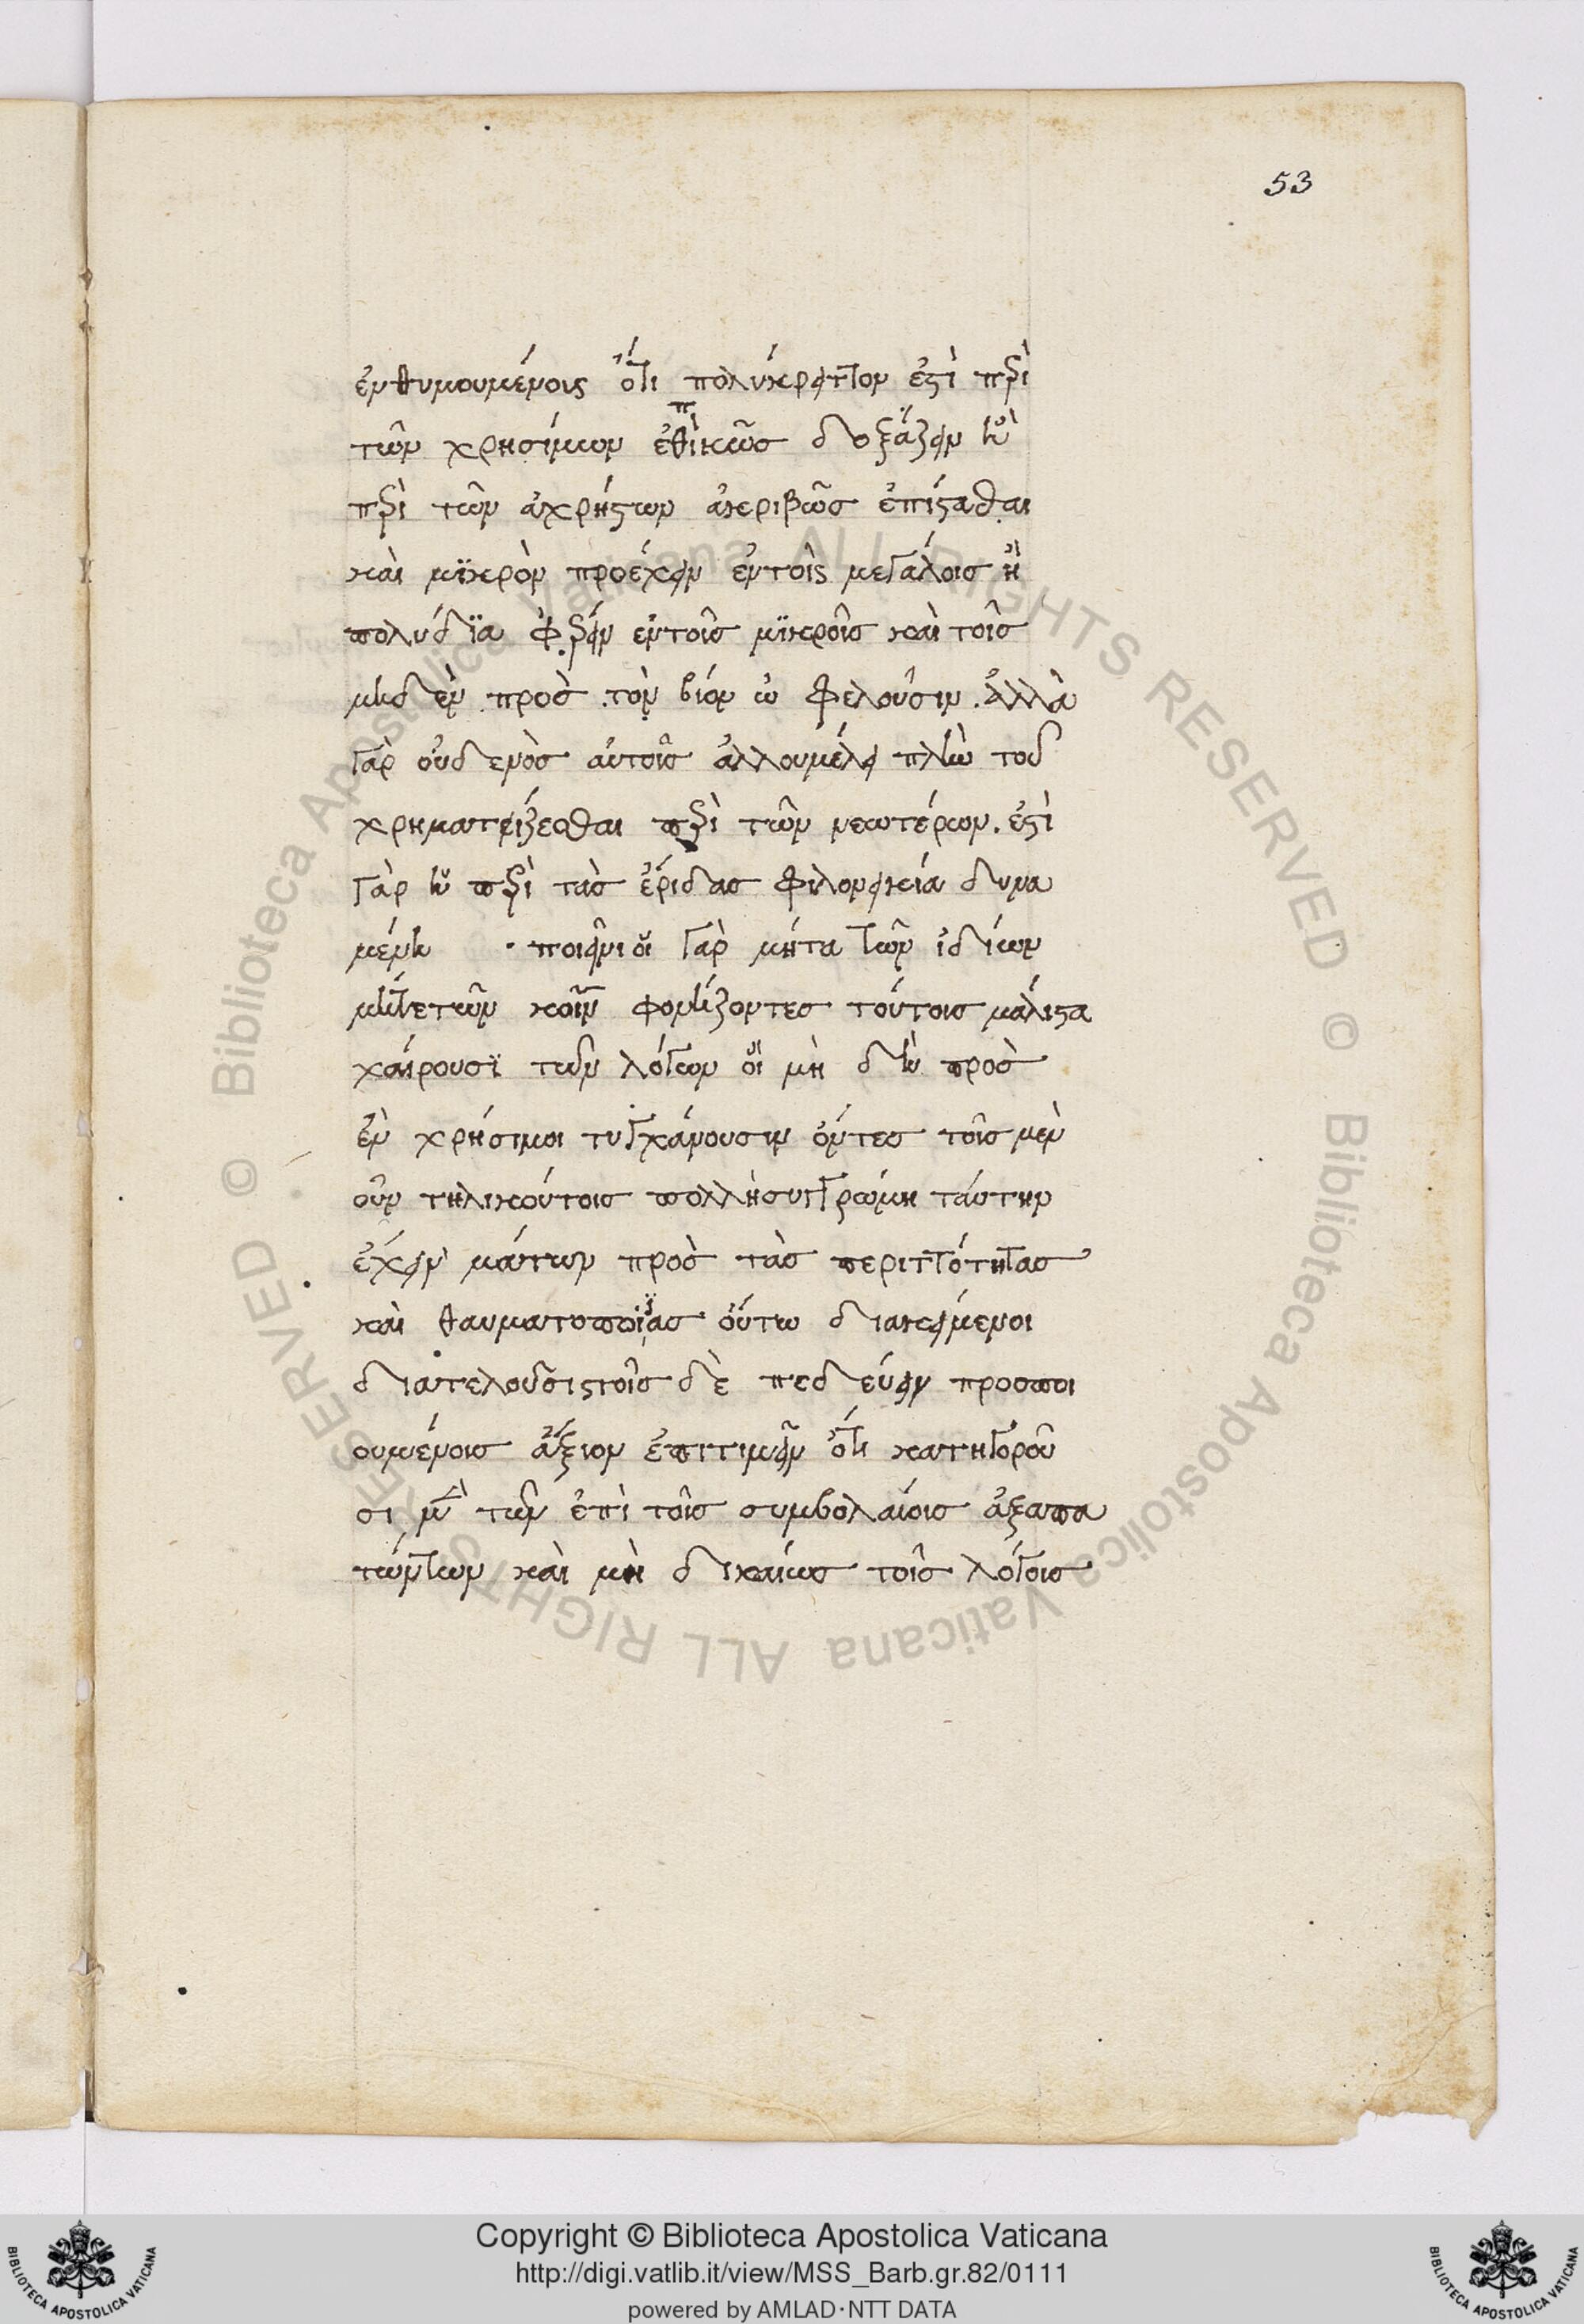 53
ἐνθυμουμένοις ὅτι πολύκρειττον ἐστὶ περὶ
π
τῶν χρησίμων ἐθικῶσ δοξάζειν καὶ
περὶ τῶν ἀχρήστων ἀκεριβῶσ ἐπίσταθαι
καὶ μϊκρὸν προέχειν ἐντοῖς μεγάλοισ ἢ
πολυδϊα φέρειν ἐντοῖσ μϊκροῖσ καὶ τοῖσ
μηδὲν προσ τὸν βίον ὠ φελοῦσιν. ἀλλὰ
γὰρ οὐδενὸσ αὐτοῖσ ἀλλουμέλει πλὴν τοῦ
χρηματείζεσθαι περὶ τῶν νεωτέρων. ἐστὶ
γὰρ ἡ περὶ τὰσ ἔριδασ φιλονεικία δυνα
μένη · ποιεῖν οἵ γὰρ μήτα τῶν ἰδίων
μήτετῶν κοινῶν φροντίζοντεσ τούτοισ μάλιστα
χαίρουσϊ τῶν λόγων οἵ μὴ δὲ προσ
ἓν χρήσιμοι τυγχάνουσιν ὄντεσ τοῖσ μὲν
οὖν τηλικούτοισ πολλὴσυγγνώμη ταύτην
ἔχειν μάντων προσ τὰσ περιττότητασ
καὶ θαυματοποιΐασ οὕτω διακείμενοι
διατελοῦσιςτοῖσ δὲ πεδεύειν προσποι
ουμένοισ ἄξιον ἐπιτιμεῖν ὅτι κατηγοροῦ
σι μὲν τῶν ἐπὶ τοῖσ συμβολαίοισ ἀξαπα
τώντων καὶ μὴ δικαίωσ τοῖσ λόγοισ
Copyright © Biblioteca Apostolica Vaticana
http://digi.vatlib.it/view/MSS_Barb.gr.82/0111
powered by AMLAD·NTT DATA
© Biblioteca Apostolica Vaticana ALL RIGHTS RESERVED
© Biblioteca Apostolica Vaticana ALL RIGHTS RESERVED
BIBLIOTECA APOSTOLICA VATICANA
BIBLIOTECA APOSTOLICA VATICANA